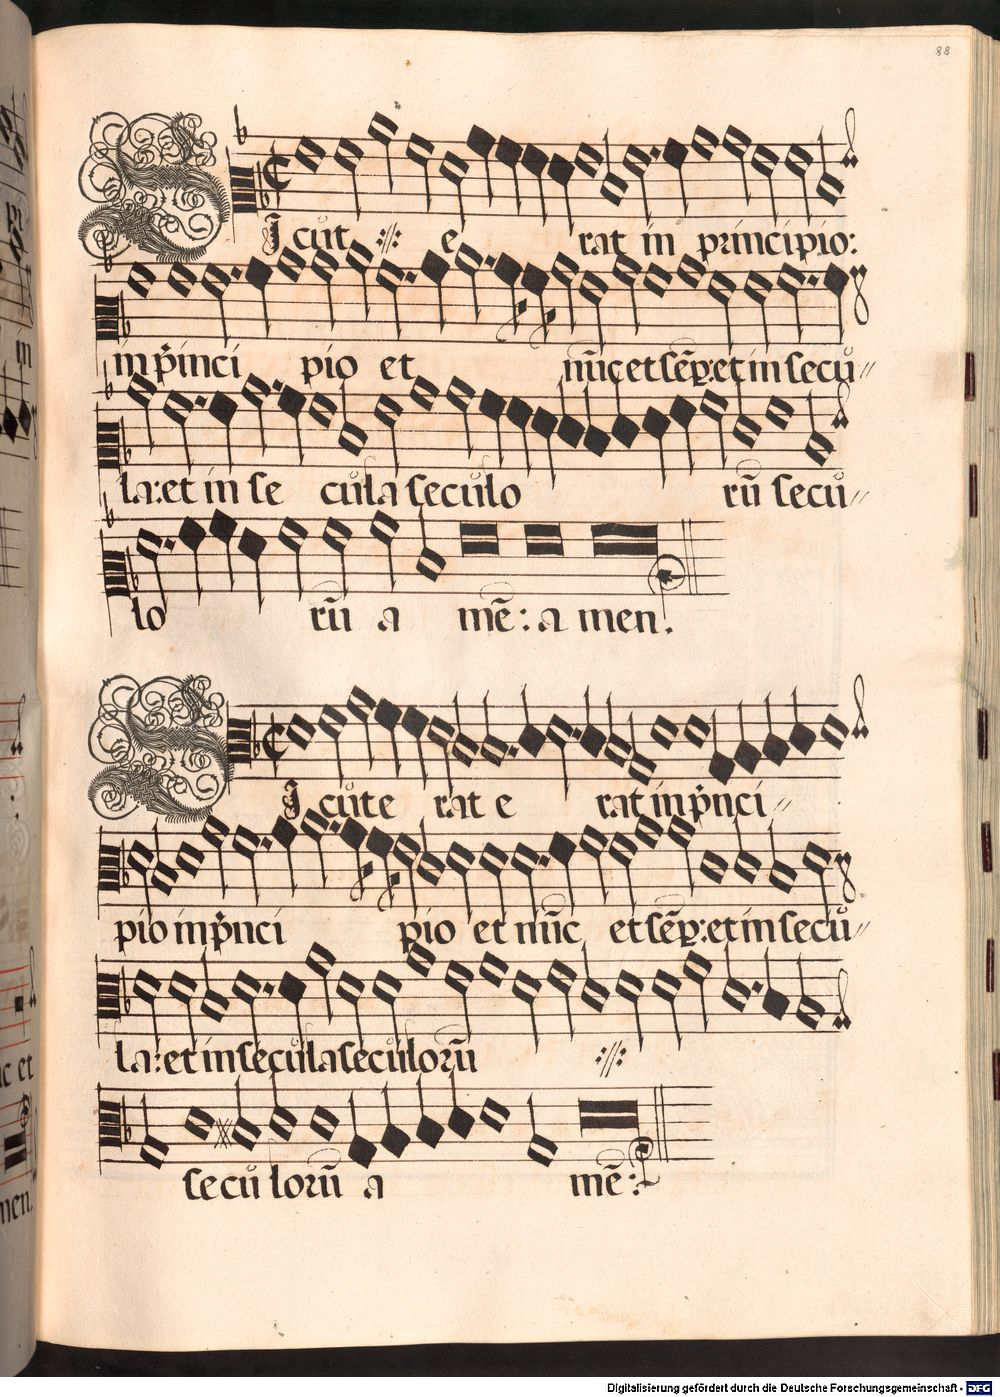 88
Sicut :||: e rat in principio:
in p̄rinci pio et nūc et sēꝑ: et in secu //
la: et in se cula seculo rū secu //
lo rū a mē: a men.
Sicut e rat e rat in p̄nci //
pio in p̄nci pio et nūc et sēꝑ: et in secu //
la: et in secula seculorū :||:
secu lorū a mē:
in
c et
men.
Digitalisierung gefördert durch die Deutsche Forschungsgemeinschaft - DFG